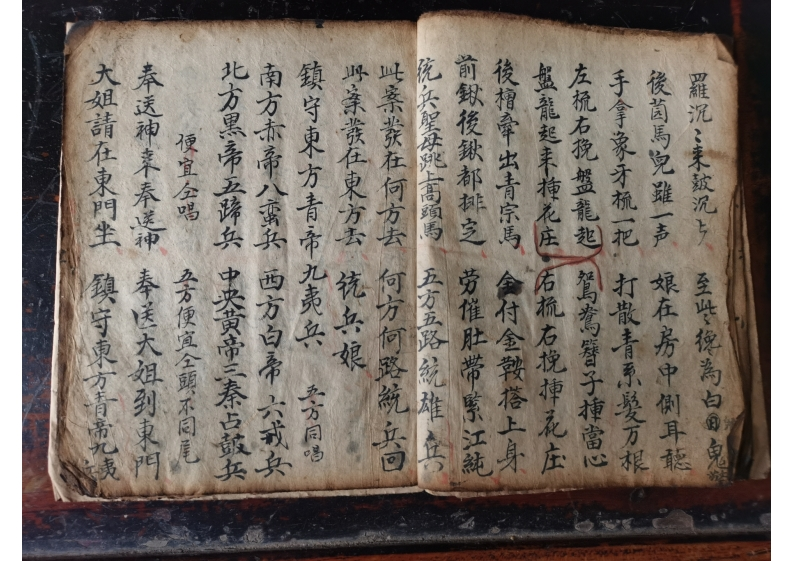 羅沉〻来皷沉〻 至此德為白
後茵馬児雖一声 娘在房中側耳聽
手拿象牙梳一把 打散青系髮万根
左梳右挽盤龍起 鴛鴦簪子揷當心
盤龍起来揷花庄 右梳右挽揷花庄
後檀牽出青宗馬 金付金鞍搭上身
前鍁後鍬都排定 劳催肚帶緊江純
統兵聖母跳上高頭馬 五方五路統雄兵
此案發在何方去 何方何路統兵回
此案發在東方去 統兵娘
鎮守東方青帝九夷兵 五方同唱
南方赤帝八蛮兵 西方白帝六戎兵
北方黒帝五蹄兵 中央黃帝三秦占鼓兵
便宜仝唱 五方便宜仝頭不同尾
奉送神来奉送神 奉送大姐到東門
大姐請在東門坐 鎮守東方青帝九夷